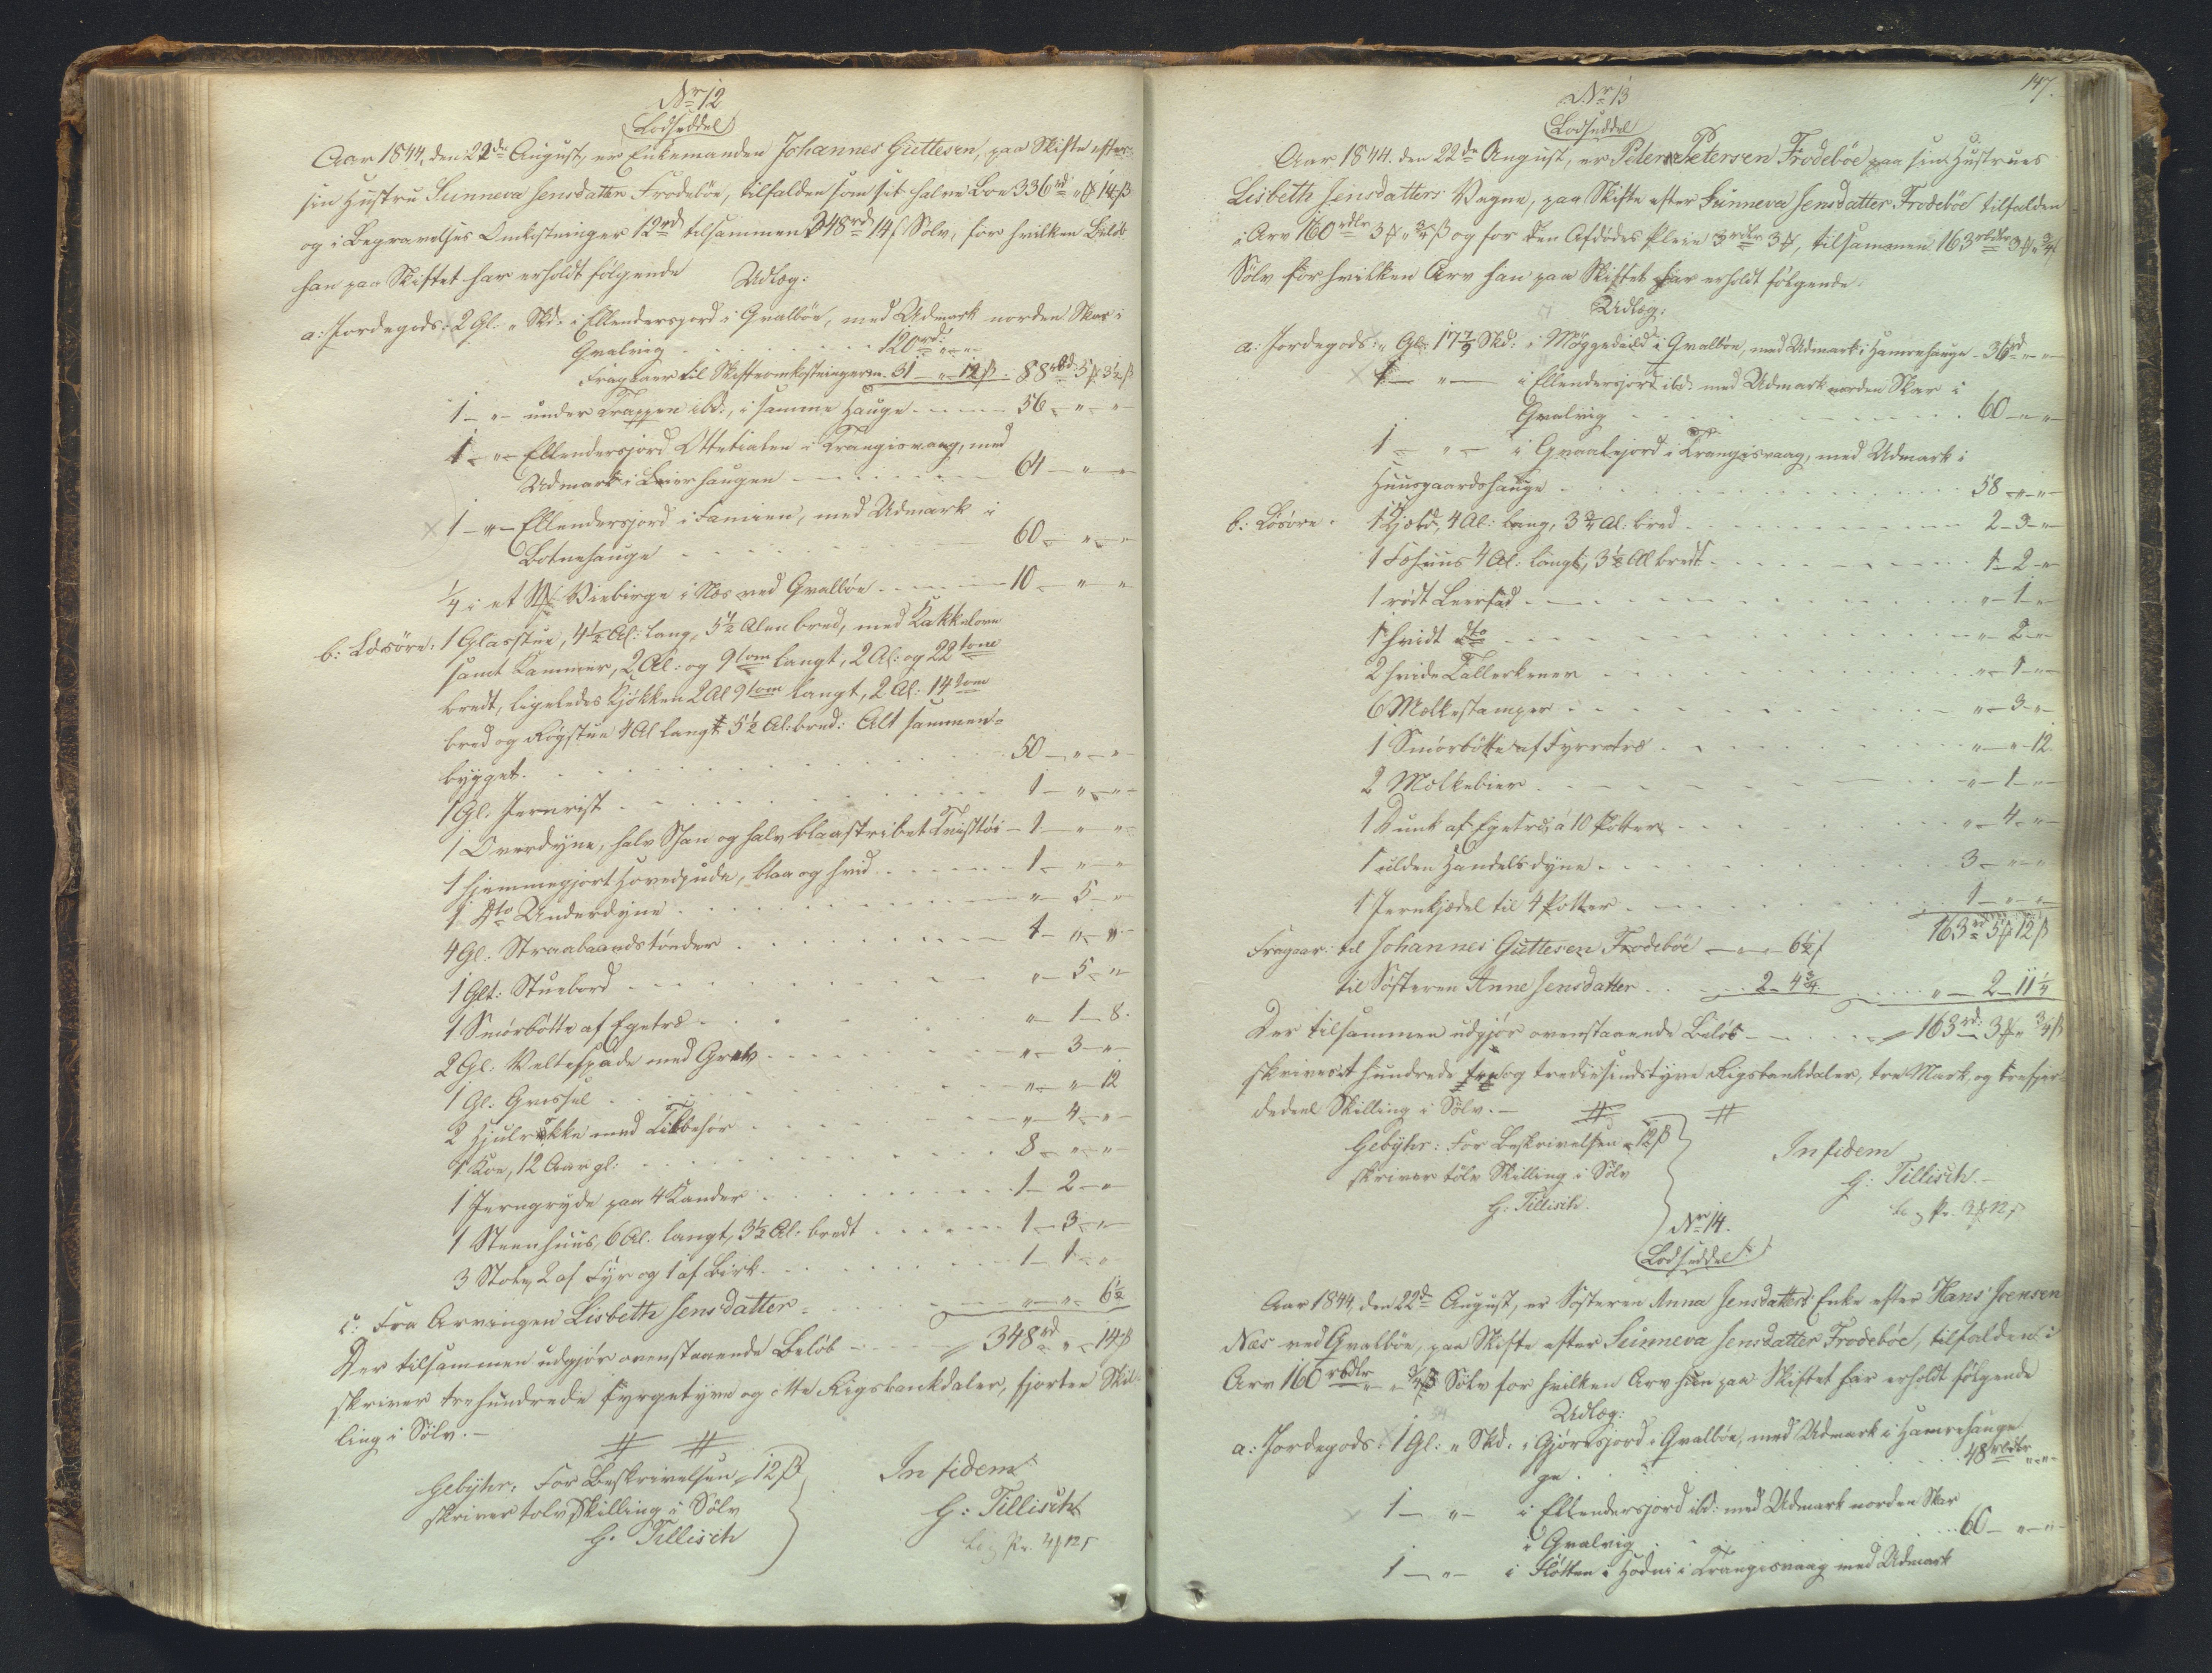 Nr 12
Lodseddel
Aar 1844, den 22de August, er Enkemanden Johannes Guttesen, paa Skifte efter
sin Hustru Sunneva Jensdatter Frodebøe, tilfalden som sit halve Boe 336rd " 14ß
og i Begravelses Omkostninger 12rd tilsammen 348rd 14ß Sølv, for hvilken Beløb
han paa Skiftet har erholdt følgende
Udlæg:
a: Jordegods: 2 Gl. " Skd. i Ellendersjord i Qvalbøe, med Udmark norden Skar i
Qvalvig . . . 120rd " "
Fragaaer til Skifteomkostningerne 31 – " – 12ß . 88rbd 5 3½ß
1 – " – under Trappen ibd., i samme Hauge . . . 56 – " – "
1 – " – Ellendersjord Ottetialen i Trangisvaag, med
Udmark i Leirhaugen . . . 64 – " – "
1 – " – Ellendersjord i Famien, med Udmark i
Botnehauge . . . 60 – " – "
¼ i et Viebirge i Næs ved Qvalbøe . . . 10 – " – "
b: Løsøre: 1 Glasstue, 4½ Al: lang, 5½ Alen bred, med Kakkelovn
samt Kammer, 2 Al: og 9 tom langt, 2 Al: og 22 tom
bredt, ligeledes Kjøkken 2 Al 9 tom langt, 2 Al: 14 tom
bred og Røgstue 4 Al langt 5½ Al: bred: Alt sammen-
bygget . . . 50 – " – "
1 Gl. Jernrist . . . 1 – " – "
1 Overdyne, halv Skan og halv blaastribet Tvisttøi – 1 – " – "
1 hjemmegjort Hovedpude, blaa og hvid . . . 1 – " – "
1 Dto Underdyne . . . " – 5 – "
4 Gl. Straabaandstønder . . . 1 – " – "
1 Glt: Stuebord . . . " – 5 – "
1 Smørbøtte af Egetræ . . . " – 1 – 8.
2 Gl: Veltespade med Greb . . . " – 3 – "
1 Gl: Grissel . . . " – " – 12
2 Hjulrokke med Tilbehør . . . " – 4 – "
1 Koe, 12 Aar gl: . . . 8 – " – "
1 Jerngryde paa 4 Kander . . . 1 – 2 – "
1 Steenhuus, 6 Al. langt, 3½ Al: bredt . . . 1 – 3 – "
3 Stole, 2 af Fyr og 1 af Birk . . . 1 – 1 – "
c: Fra Arvingen Lisbeth Jensdatter . . . " – " – 6½
Der tilsammen udgjør ovenstaaende Beløb . . . 348rd " – 14ß
skriver trehundrede fyrgetyve og otte Rigsbankdaler, fjorten Skil-
ling i Sølv. –
Gebyhr: For Beskrivelsen 12ß
skriver tolv Skilling i Sølv
G. Tillisch
In fidem
G: Tillisch
147.
Nr 13
Lodseddel
Aar 1844. den 22de August, er Peter Petersen Frodebøe paa sin Hustrues
Lisbeth Jensdatters Vegne, paa Skifte efter Sunneva Jensdatter Frodebøe tilfalden
i Arv 160 rdlr 3 " ¾ß og for den Afdødes Pleie 3 rdlr 3, tilsammen 163 rbdlr 3 " ¾
Sølv for hvilken Arv han paa Skiftet har erholdt følgende.
Udlæg:
a. Jordegods: " Gl. 17 7/9 Skd: i Møggedeild i Qvalbøe, med Udmark i Hamrehauge – 36rd " – "
1 – " – i Ellendersjord ibd. med Udmark norden Skar i
Qvalvig . . . 60 – " – "
1 – " – i Qvalejord i Trangisvaag, med Udmark i
Huusgaardshauge . . . 58 – " – "
b: Løsøre. 1 Hjeld, 4 Al: lang, 3¾ Al: bred . . . 2 – 3 – "
1 Føhuus 4 Al: langt, 3½ Al bredt . . . 1 – 2 – "
1 rødt Leerfad . . . " – 1 – "
1 hvidt dto . . . " – 2 – "
2 hvide Tallerkener . . . " – 1 – "
6 Melkestamper . . . " – 3 – "
1 Smørbøtte af Fyrretræ . . . " – " – 12.
2 Melkebier . . . " – 1 – "
1 Dunk af Egetræ, á 10 Potter . . . " – 4 – "
1 ulden Handelsdyne . . . 3 – " – "
1 Jernkjædel til 4 Potter . . . 1 – " – "
163rd 5 12ß
Fragaar: til Johannes Guttesen Frodebøe – " – 6½ß
til Søsteren Anne Jensdatter . . . 2 – 4¾ . . . " – 2 – 11¼
Der tilsammen udgjør ovenstaaende Beløb . . . 163rd: 3 " ¾ß
skriver et hundrede tre og tredsindstyve Rigsbankdaler, tre Mark og trefjer-
dedeel Skilling i Sølv. –
Gebyhr: For Beskrivelsen 12ß
skriver tolv Skilling i Sølv
G: Tillisch.
In fidem
G: Tillisch. –
Nr 14.
Lodseddel
Aar 1844, den 22de August, er Søsteren Anna Jensdatters Enke efter Hans Joensen
Næs ved Qvalbøe, paa Skifte efter Sunneva Jensdatter Frodebøe, tilfalden i
Arv 160 rbdlr " – " ¾ß Sølv for hvilken Arv hun paa Skiftet har erholdt følgende
Udlæg:
a: Jordegods: 1 Gl: " Skd. i Gjørvsjord i Qvalbøe, med Udmark i Hamrehau-
ge . . . 48 rbdlr " – "
1 – " – i Ellendersjord ibd: med Udmark norden Skar
i Qvalvig . . . 60 – " – "
1 – " – i Fløtten i Hodni i Trangisvaag med Udmark